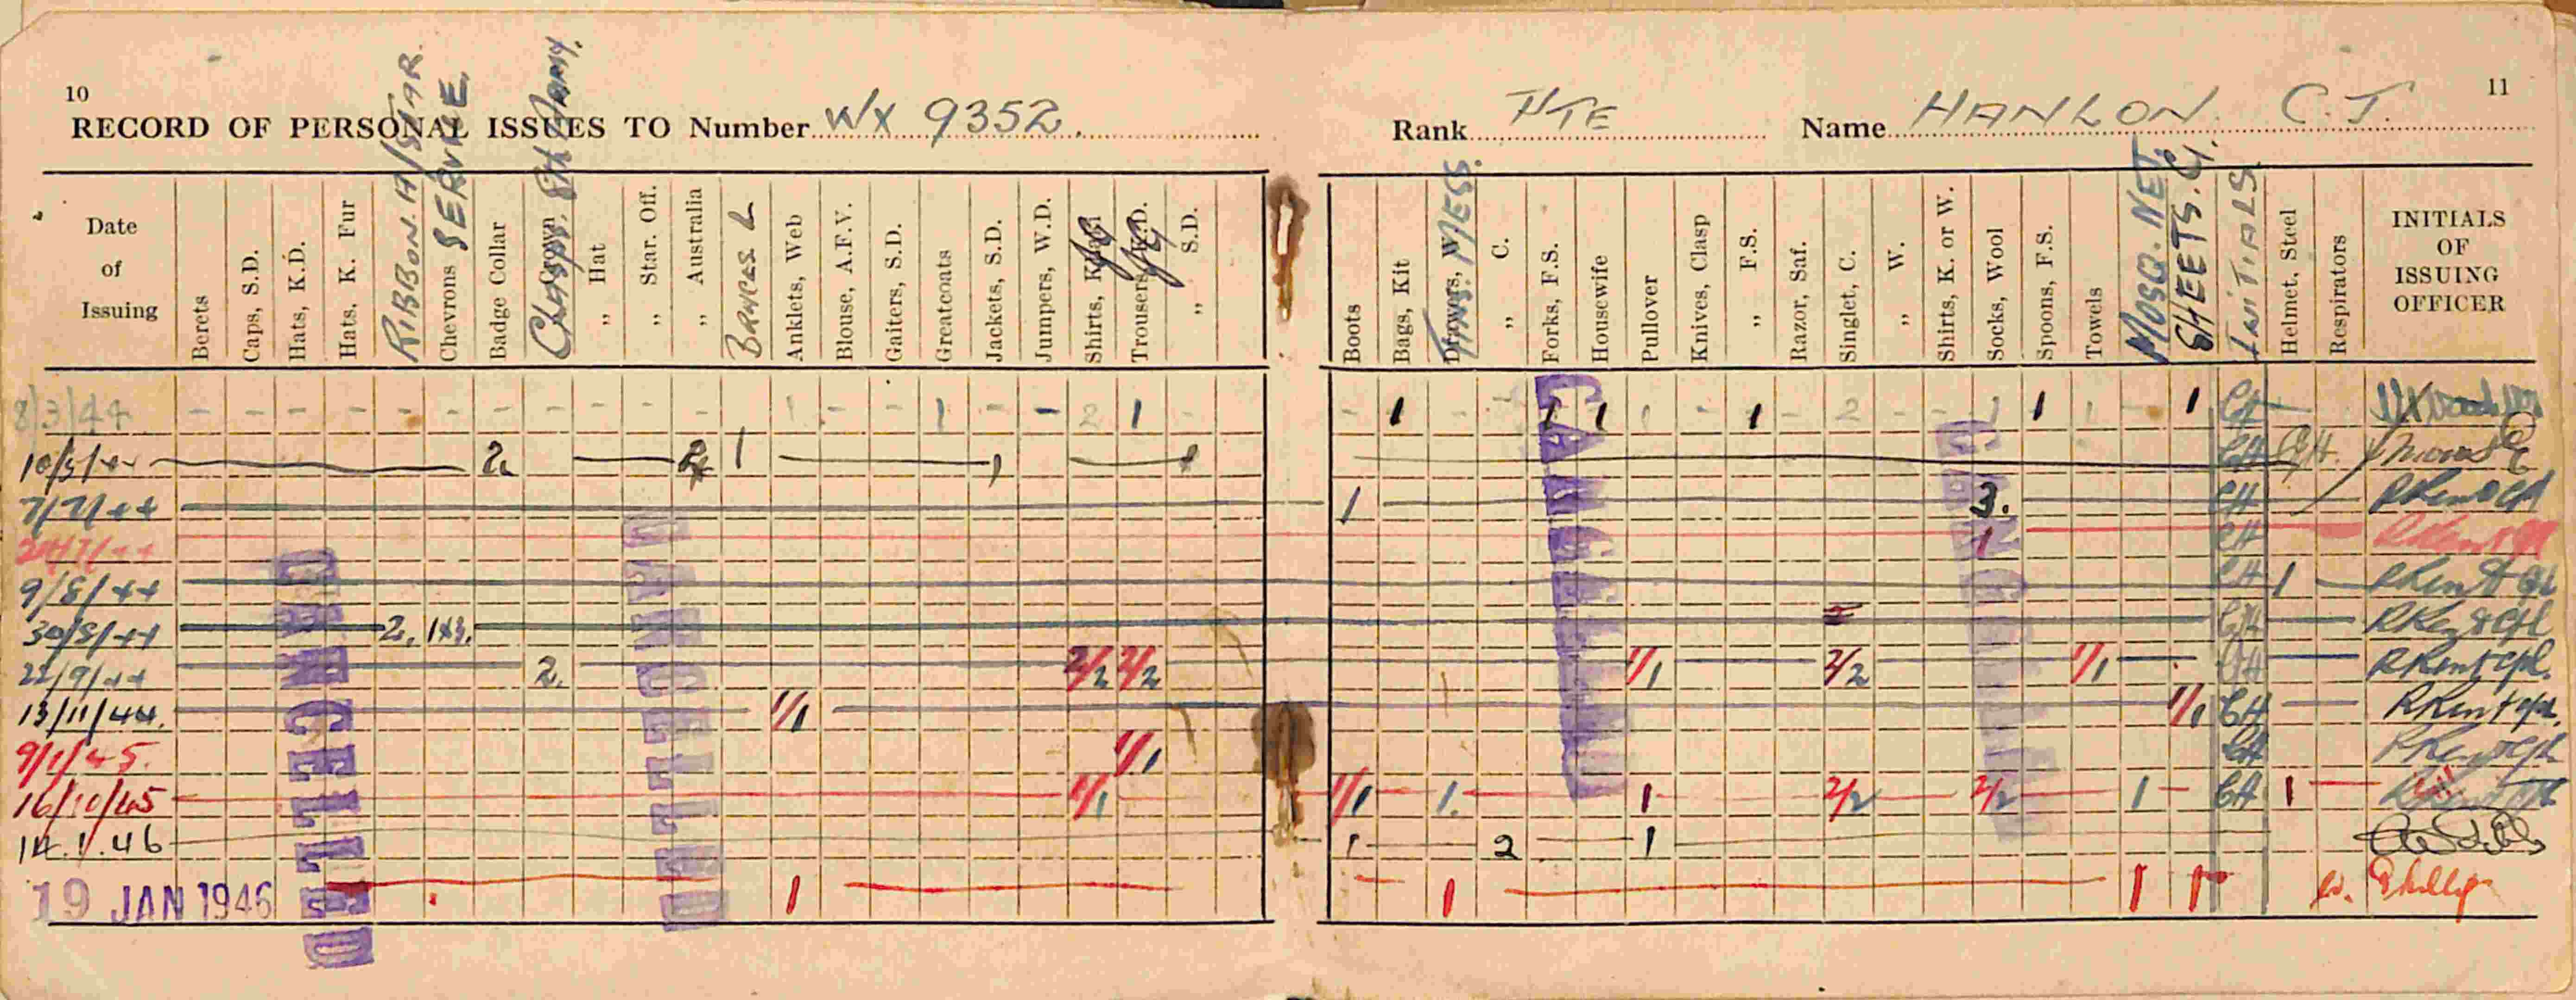 10
RECORD OF PERSONAL ISSUES TO Number WX 9352.
Rank PTE Name HANLON C.J. 11
Date of Issuing
Berets
Caps, S.D.
Hats, K.D.
Hats. K. Fur
RIBBON. A/STAR.
Chevrons SERVICE.
Badge Collar
" Crown CLASPS. 8th ARMY.
" Hat
" Star. Off.
" Australia
BRACES
Anklets, Web
Blouse, A.F.V.
Gaiters, S.D.
Greatcoats
Jackets, S.D.
Jumpers, W.D.
Shirts, Khaki JG
Trousers, K.D. JG
" S.D.
Boots
Bags, Kit
Drawers, W. TINS. MESS.
" C.
Forks, F.S.
Housewife
Pullover
Knives, Clasp
" F.S.
Razor, Saf.
Singlet, C.
" W.
Shirts, K. or W.
Socks, Wool
Spoons, F.S.
Towels
MOSQ. NET.
SHEETS. G.
INITIALS
Helmet, Steel
Respirators
INITIALS
OF
ISSUING
OFFICER
8/3/44 - - - - - - - - - - - - 1 - - 1 - - 2 1 - - 1 - - 1 1 1 - 1 - 2 - - 1 1 1 - 1 CH
10/5/44 2 2 1 1 1 CH CH
7/7/44 1 3. CH
24/7/44 1 CH
9/8/44 CH 1 RKent Cpl
30/8/44 2. 1x3. CH
22/9/44 2. 2/2 2/2 1/1 2/2 1/1 CH RKent cpl.
13/11/44. 1/1 1/1 CH RKent cpl.
9/1/45. 1/1 CH
16/10/45 1/1 1/1 1. 1 2/2 2/2 1 CH 1
14.1.46 1 2 1
19 JAN 1946 1 1 1 1 Phillips
CANCELLED
CANCELLED
CANCELLED
CANCELLED